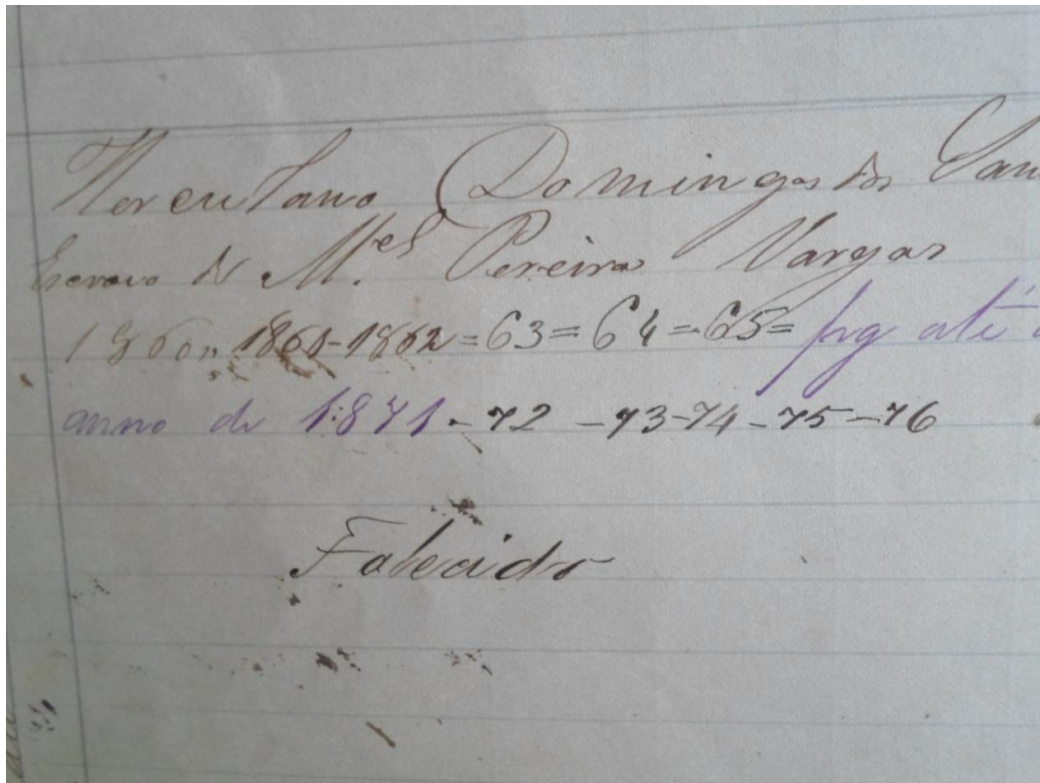 Herculano Domingos dos San
Escravo de M.el Pereira Vargas
1860 = 1861-1862 = 63 = 64 = 65 = pg até o
anno de 1:871 - 72 - 73-74 - 75 - 76
Falecido